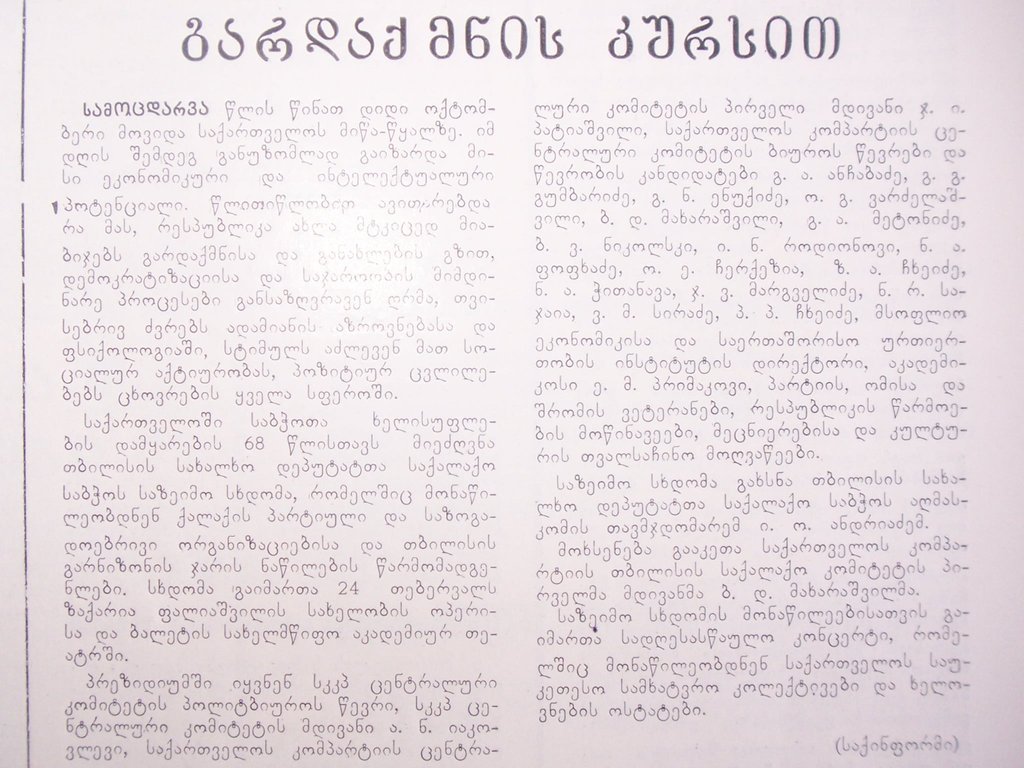 გარდაქმნის კურსით
სამოცდარვა წლის წინათ დიდი ოქტომ-
ბერი მოვიდა საქართველოს მიწა-წყალზე. იმ
დღის შემდეგ განუზომლად გაიზარდა მი-
სი ეკონომიკური და ინტელექტუალური
პოტენციალი. წლითიწლობით ავითარებდა
რა მას, რესპუბლიკა ახლა მტკიცედ მია-
ბიჯებს გარდაქმნისა და განახლების გზით,
დემოკრატიზაციისა და საჯაროობის მიმდი-
ნარე პროცესები განსაზღვრავენ ღრმა, თვი-
სებრივ ძვრებს ადამიანის აზროვნებასა და
ფსიქოლოგიაში, სტიმულს აძლევენ მათ სო-
ციალურ აქტიურობას, პოზიტიურ ცვლილე-
ბებს ცხოვრების ყველა სფეროში.
საქართველოში საბჭოთა ხელისუფლე-
ბის დამყარების 68 წლისთავს მიეძღვნა
თბილისის სახალხო დეპუტატთა საქალაქო
საბჭოს საზეიმო სხდომა, რომელშიც მონაწი-
ლეობდნენ ქალაქის პარტიული და საზოგა-
დოებრივი ორგანიზაციებისა და თბილისის
გარნიზონის ჯარის ნაწილების წარმომადგე-
ნლები. სხდომა გაიმართა 24 თებერვალს
ზაქარია ფალიაშვილის სახელობის ოპერი-
სა და ბალეტის სახელმწიფო აკადემიურ თე-
ატრში.
პრეზიდიუმში იყვნენ სკკპ ცენტრალური
კომიტეტის პოლიტბიუროს წევრი, სკკპ ცე-
ნტრალური კომიტეტის მდივანი ა. ნ. იაკო-
ვლევი, საქართველოს კომპარტიის ცენტრა-
ლური კომიტეტის პირველი მდივანი ჯ. ი.
პატიაშვილი, საქართველოს კომპარტიის ცე-
ნტრალური კომიტეტის ბიუროს წევრები და
წევრობის კანდიდატები გ. ა. ანჩაბაძე, გ. გ.
გუმბარიძე, გ. ნ. ენუქიძე, ო. გ. ვარძელაშ-
ვილი, ბ. დ. მახარაშვილი, გ. ა. მეტონიძე,
ბ. ვ. ნიკოლსკი, ი. ნ. როდიონოვი, ნ. ა.
ფოფხაძე, ო. ე. ჩერქეზია, ზ. ა. ჩხეიძე,
ნ. ა. ჭითანავა, ჯ. ვ. მარგველიძე, ნ. რ. სა-
ჯაია, ვ. მ. სირაძე, პ. პ. ჩხეიძე, მსოფლიო
ეკონომიკისა და საერთაშორისო ურთიერ-
თობის ინსტიტუტის დირექტორი, აკადემი-
კოსი ე. მ. პრიმაკოვი, პარტიის, ომისა და
შრომის ვეტერანები, რესპუბლიკის წარმოე-
ბის მოწინავეები, მეცნიერებისა და კულტუ-
რის თვალსაჩინო მოღვაწეები.
საზეიმო სხდომა გახსნა თბილისის სახა-
ლხო დეპუტატთა საქალაქო საბჭოს აღმას-
კომის თავმჯდომარემ ი. ო. ანდრიაძემ.
მოხსენება გააკეთა საქართველოს კომპა-
რტიის თბილისის საქალაქო კომიტეტის პი-
რველმა მდივანმა ბ. დ. მახარაშვილმა.
საზეიმო სხდომის მონაწილეებისათვის გა-
იმართა სადღესასწაულო კონცერტი, რომე-
ლშიც მონაწილეობდნენ საქართველოს საუ-
კეთესო სამხატვრო კოლექტივები და ხელო-
ვნების ოსტატები.
(საქინფორმი)